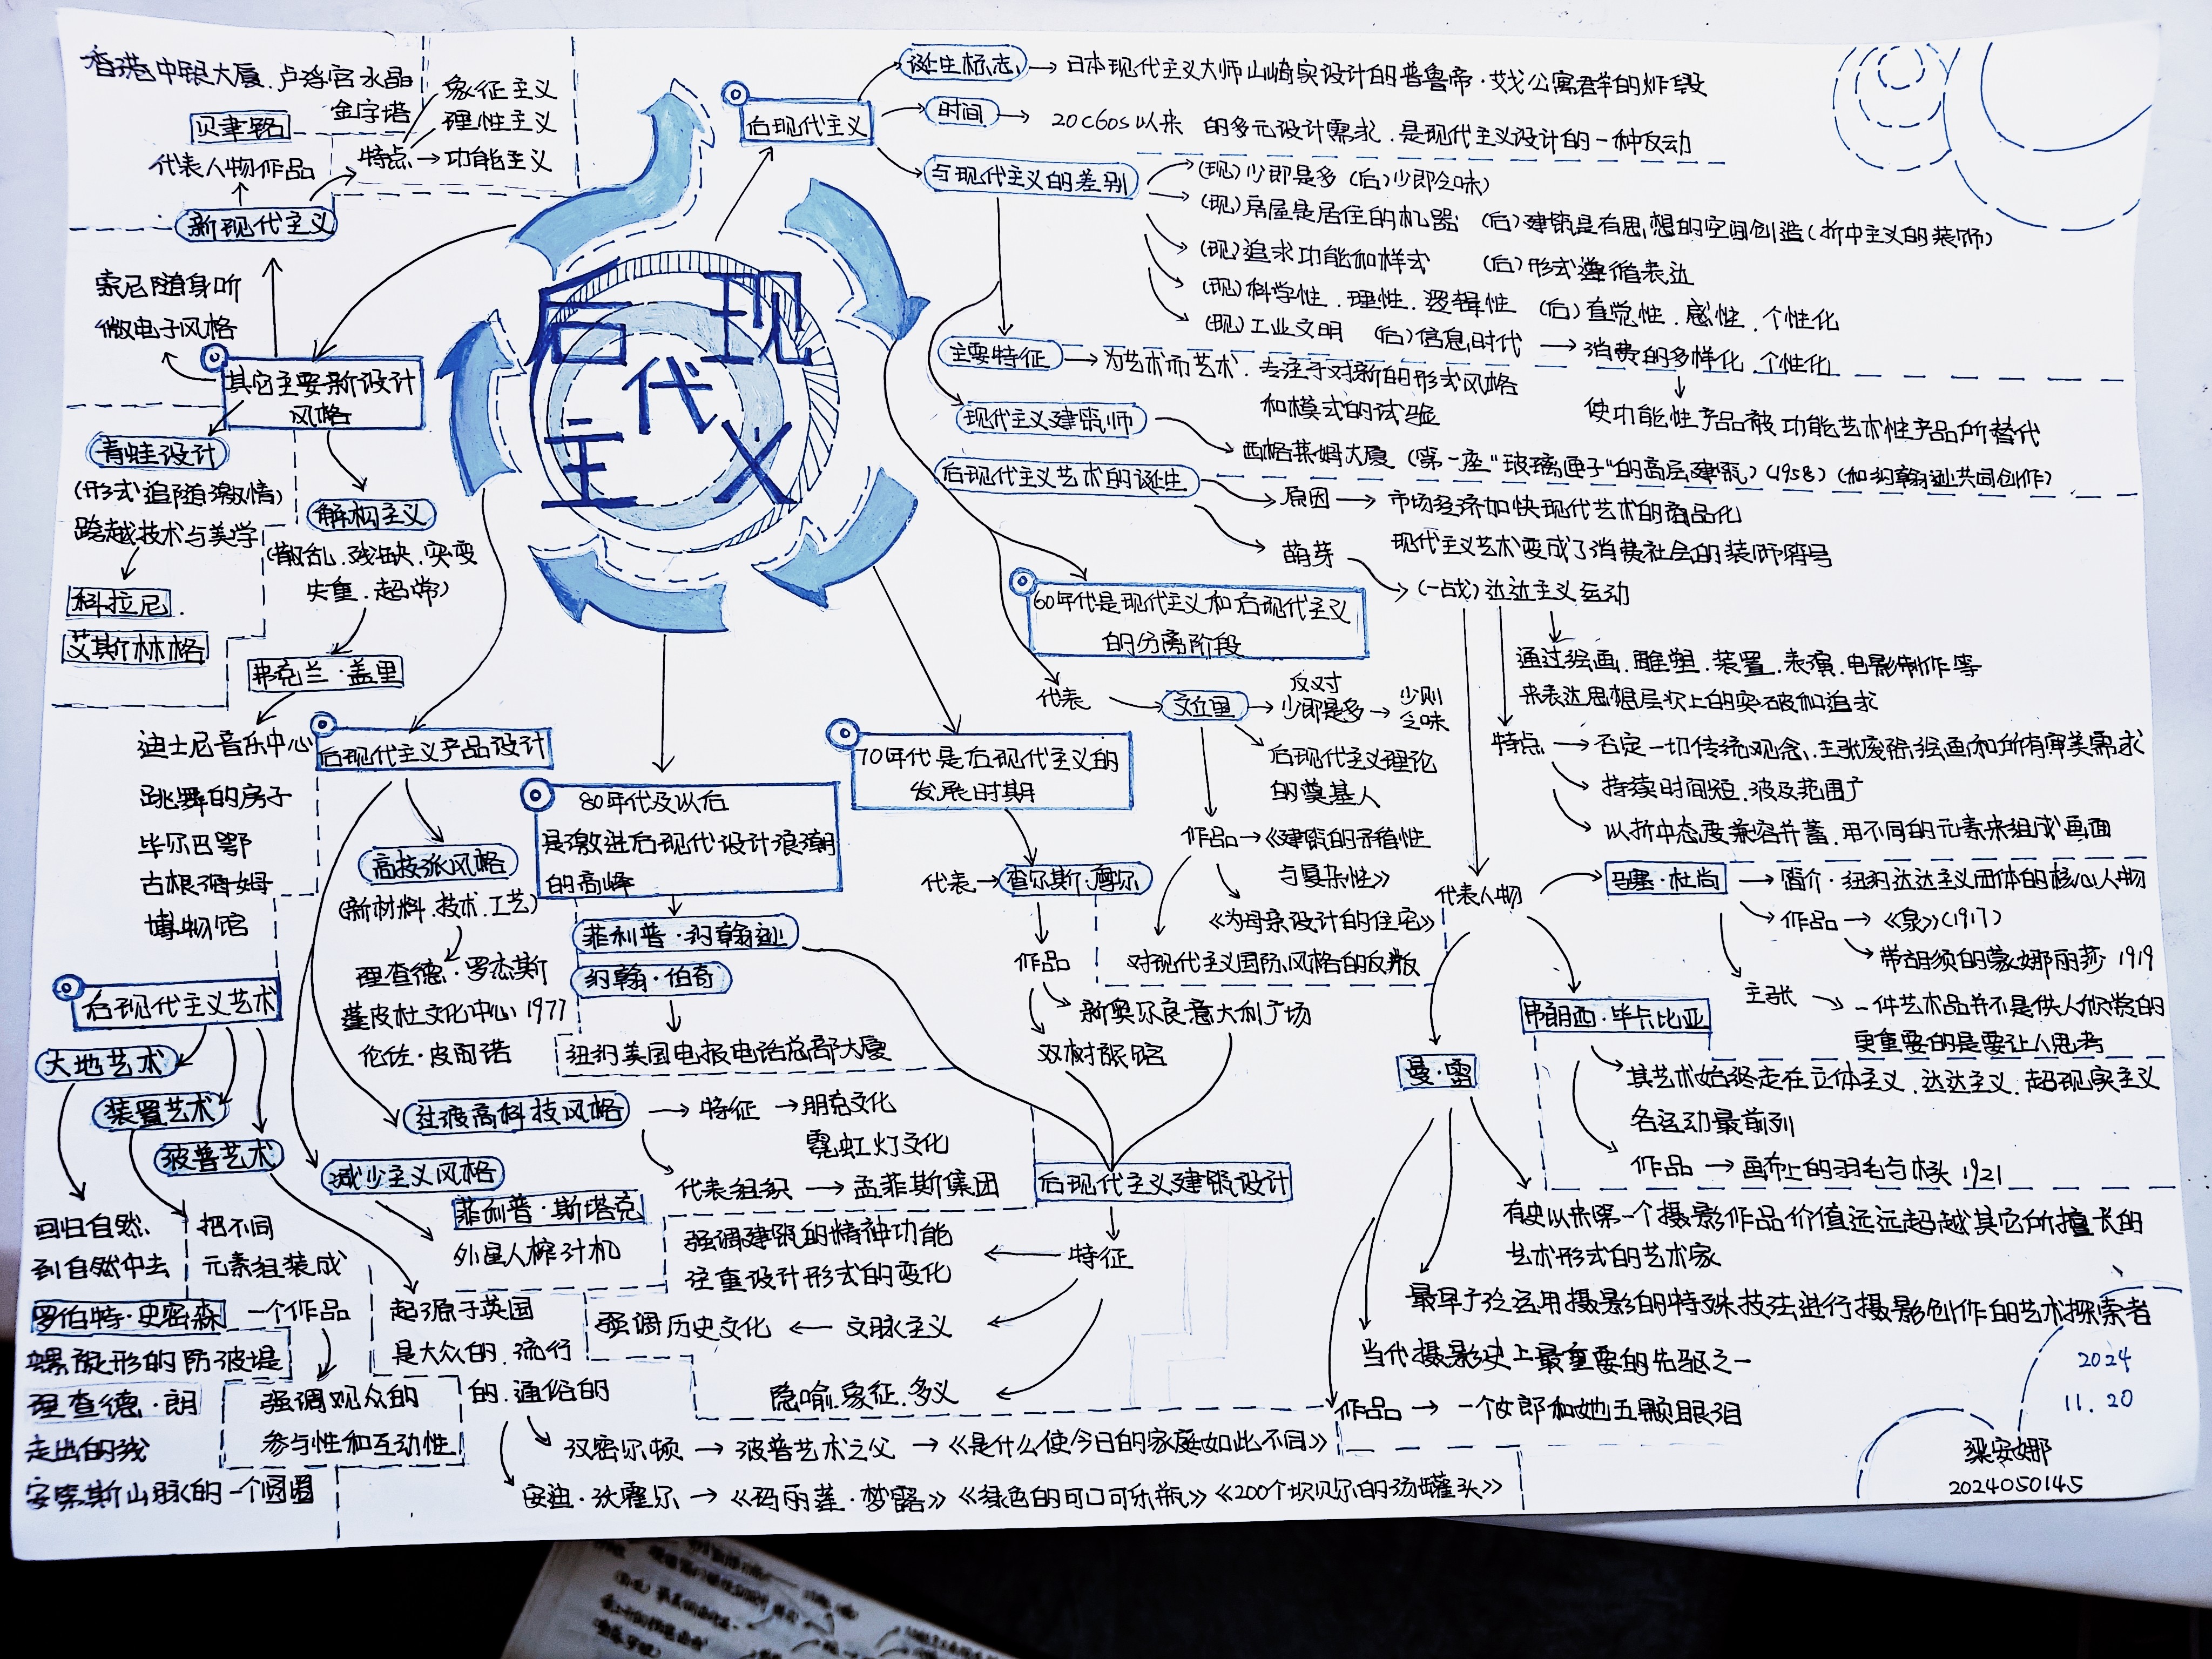 后现代主义
后现代主义
诞生标志
日本现代主义大师山崎实设计的普鲁帝·艾戈公寓群的炸毁
时间
20C60s以来 的多元设计需求.是现代主义设计的一种反动
与现代主义的差别
(现)少即是多 (后)少即乏味
(现)房屋是居住的机器 (后)建筑是有思想的空间创造(折中主义的装饰)
(现)追求功能和样式 (后)形式遵循表达
(现)科学性.理性.逻辑性 (后)直觉性.感性.个性化
(现)工业文明 (后)信息时代
消费的多样化.个性化
使功能性产品被功能艺术性产品所替代
主要特征
为艺术而艺术.专注于对新的形式风格
和模式的试验
现代主义建筑师
西格莱姆大厦(第一座"玻璃匣子"的高层建筑)(1958)(和约翰逊共同创作)
后现代主义艺术的诞生
原因
市场经济加快现代艺术的商品化
现代主义艺术变成了消费社会的装饰符号
萌芽
(一战)达达主义运动
通过绘画.雕塑.装置.表演.电影制作等
来表达思想层次上的突破和追求
特点
否定一切传统观念.主张废除绘画和所有审美需求
持续时间短.波及范围广
以折中态度兼容并蓄.用不同的元素来组成画面
代表人物
马塞·杜尚
简介·纽约达达主义团体的核心人物
作品
《泉》(1917)
带胡须的蒙娜丽莎 1919
主张
一件艺术品并不是供人欣赏的
更重要的是要让人思考
弗朗西·毕卡比亚
其艺术始终走在立体主义.达达主义.超现实主义
各运动最前列
作品
画布上的羽毛与木头 1921
曼·雷
有史以来第一个摄影作品价值远远超越其它所擅长的
艺术形式的艺术家
最早广泛运用摄影的特殊技法进行摄影创作的艺术探索者
当代摄影史上最重要的先驱之一
作品
一个女郎和她五颗眼泪
60年代是现代主义和后现代主义
的分离阶段
代表
文丘里
反对
少即是多
少则
乏味
后现代主义理论
的奠基人
作品
《建筑的矛盾性
与复杂性》
《为母亲设计的住宅》
对现代主义国际风格的反叛
70年代是后现代主义的
发展时期
代表
查尔斯·摩尔
作品
新奥尔良意大利广场
双树旅馆
80年代及以后
是激进后现代设计浪潮
的高峰
菲利普·约翰逊
约翰·伯奇
纽约美国电报电话总部大厦
后现代主义建筑设计
特征
强调建筑的精神功能
注重设计形式的变化
文脉主义
强调历史文化
隐喻.象征.多义
后现代主义产品设计
高技派风格
(新材料.技术.工艺)
理查德·罗杰斯
蓬皮杜文化中心 1977
伦佐·皮阿诺
过渡高科技风格
特征
朋克文化
霓虹灯文化
代表组织
孟菲斯集团
减少主义风格
菲利普·斯塔克
外星人榨汁机
其它主要新设计
风格
新现代主义
代表人物作品
贝聿铭
香港中银大厦.卢浮宫水晶
金字塔
特点
象征主义
理性主义
功能主义
索尼随身听
微电子风格
青蛙设计
(形式追随激情)
跨越技术与美学
科拉尼.
艾斯林格
解构主义
(散乱.残缺.突变
失重.超常)
弗克兰·盖里
迪士尼音乐中心
跳舞的房子
毕尔巴鄂
古根海姆
博物馆
后现代主义艺术
大地艺术
装置艺术
波普艺术
回归自然.
到自然中去
罗伯特·史密森
螺旋形的防波堤
理查德·朗
走出的线
安第斯山脉的一个圆圈
把不同
元素组装成
一个作品
强调观众的
参与性和互动性
起源于英国
是大众的.流行
的.通俗的
汉密尔顿
波普艺术之父
《是什么使今日的家庭如此不同》
安迪·沃霍尔
《玛丽莲·梦露》《绿色的可口可乐瓶》《200个坎贝尔的汤罐头》
2024
11.20
梁安娜
2024050145